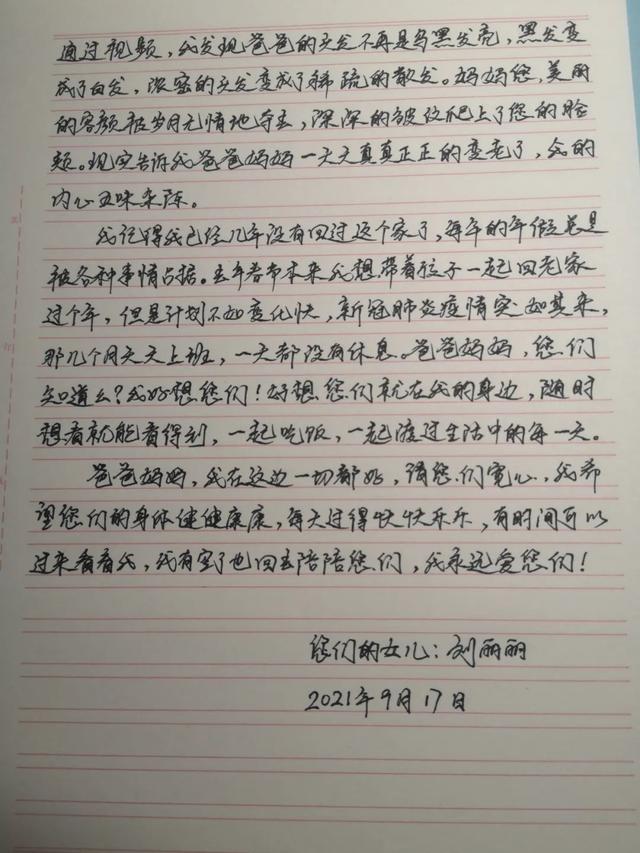 通过视频，我发现爸爸的头发不再是乌黑发亮，黑发变
成了白发，浓密的头发变成了稀疏的散发。妈妈您，美丽
的容颜被岁月无情地夺去，深深的皱纹爬上了您的脸
颊。现实告诉我爸爸妈妈一天天真真正正的变老了，我的
内心五味杂陈。
我记得我已经几年没有回过这个家了，每年的年假总是
被各种事情占据。去年春节本来我想带着孩子一起回老家
过个年，但是计划不如变化快，新冠肺炎疫情突如其来，
那几个月天天上班，一天都没有休息。爸爸妈妈，您们
知道么？我好想您们！好想您们就在我的身边，随时
想看就能看得到，一起吃饭，一起渡过生活中的每一天。
爸爸妈妈，我在这边一切都好，请您们宽心，我希
望您们的身体健健康康，每天过得快快乐乐，有时间可以
过来看看我，我有空了也回去陪陪您们，我永远爱您们！
您们的女儿：刘丽丽
2021年9月17日